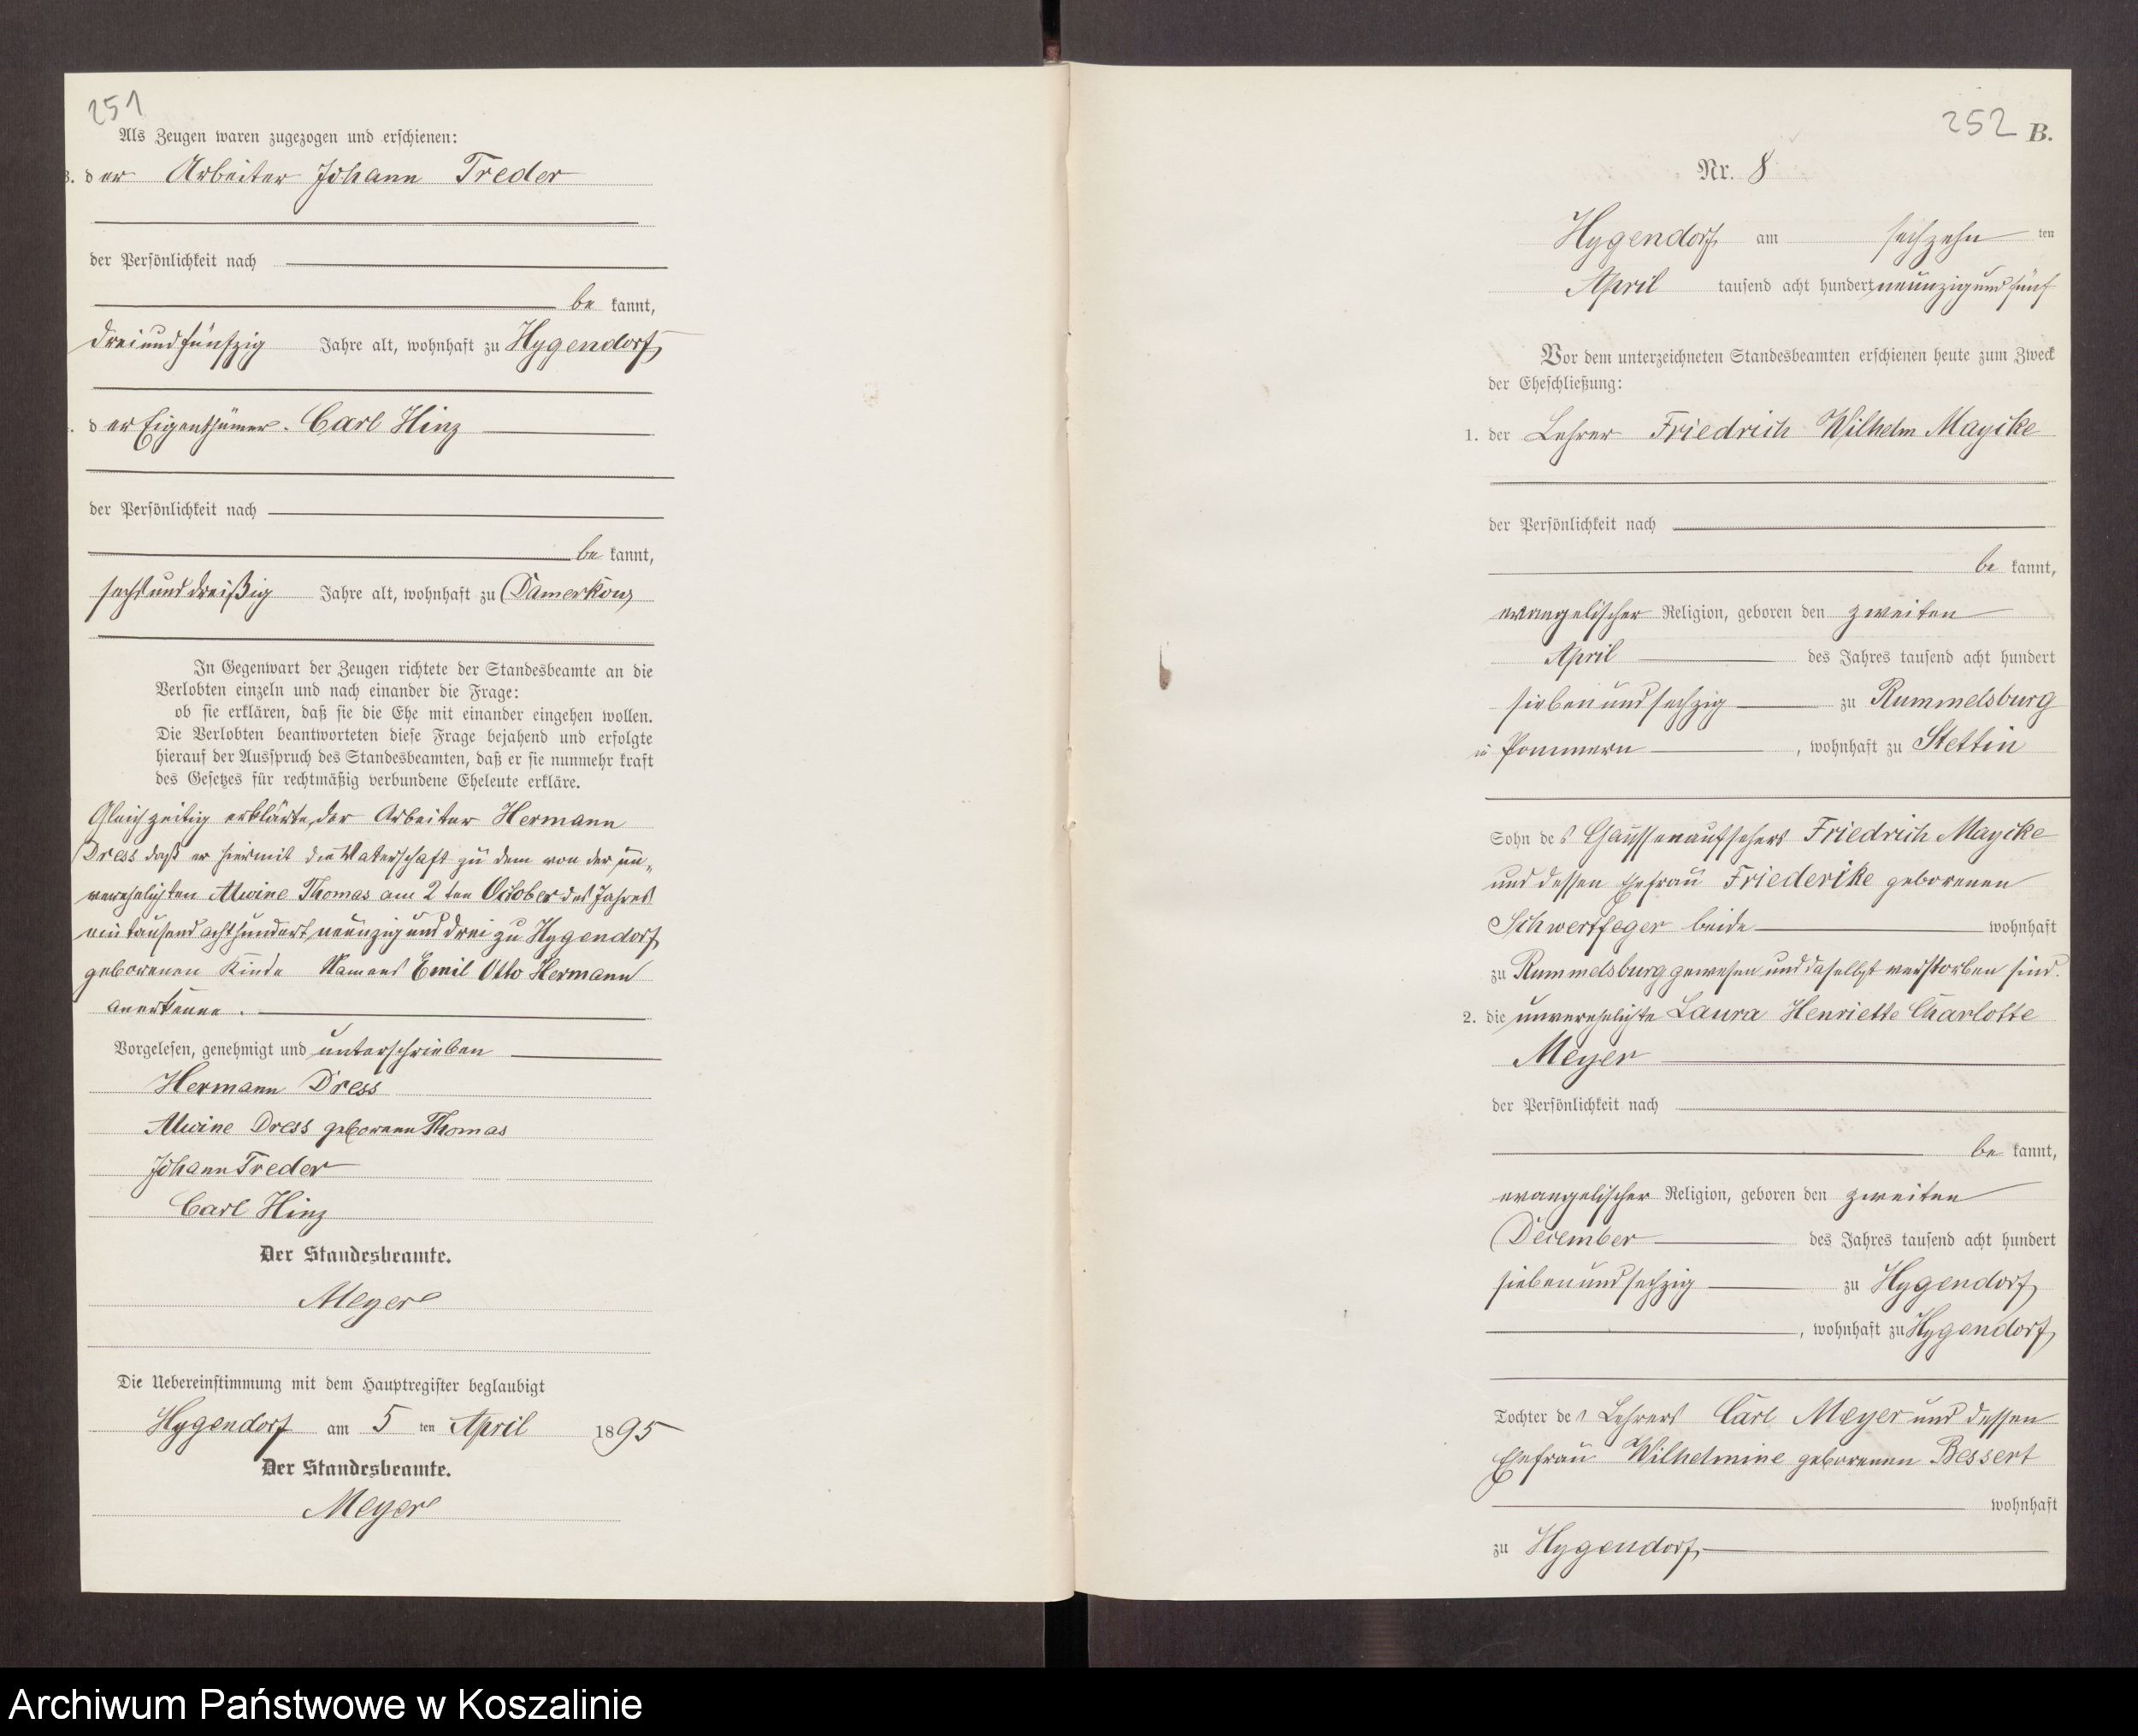 251
Als Zeugen waren zugezogen und erschienen:
3. der Arbeiter Johann Treder
der Persönlichkeit nach
be kannt,
dreiundfünfzig Jahre alt, wohnhaft zu Hygendorf,
der Eigenthümer Carl Hinz
der Persönlichkeit nach
be kannt,
sechsunddreißig Jahre alt, wohnhaft zu Damerkow,
In Gegenwart der Zeugen richtete der Standesbeamte an die
Verlobten einzeln und nach einander die Frage:
ob sie erklären, daß sie die Ehe mit einander eingehen wollen.
Die Verlobten beantworteten diese Frage bejahend und erfolgte
hierauf der Ausspruch des Standesbeamten, daß er sie nunmehr kraft
des Gesetzes für rechtmäßig verbundene Eheleute erkläre.
Gleichzeitig erklärte, der Arbeiter Hermann
Dress daß er hiermit die Vaterschaft zu dem von der un„
verehelichten Alwine Thomas am 2 ten October des Jahres
eintausend achthundert neunzig und drei zu Hygendorf
geborenen Kinde Namens Emil Otto Hermann
anerkenne.
Vorgelesen, genehmigt und unterschrieben
Hermann Dress
Alwine Dress geborene Thomas
Johann Treder
Carl Hinz
Der Standesbeamte.
Meyer
Die Uebereinstimmung mit dem Hauptregister beglaubigt
Hygendorf am 5 ten April 1895
Der Standesbeamte.
Meyer
252 B.
Nr. 8
Hygendorf am sechzehn ten
April tausend acht hundert neunzig und fünf
Vor dem unterzeichneten Standesbeamten erschienen heute zum Zweck
der Eheschließung:
1. der Lehrer Friedrich Wilhelm Maycke
der Persönlichkeit nach
be kannt,
evangelischer Religion, geboren den zweiten
April des Jahres tausend acht hundert
sieben und sechzig zu Rummelsburg
in Pommern, wohnhaft zu Stettin
Sohn des Chaussenaufsehers Friedrich Maycke
und dessen Ehefrau Friederike geborenen
Schwertfeger beide wohnhaft
zu Rummelsburg gewesen und daselbst verstorben sind.
2. die unverehelichte Laura Henriette Charlotte
Meyer
der Persönlichkeit nach
be kannt,
evangelischer Religion, geboren den zweiten
December des Jahres tausend acht hundert
sieben und sechzig zu Hygendorf,
, wohnhaft zu Hygendorf,
Tochter des Lehrers Carl Meyer und dessen
Ehefrau Wilhelmine geborenen Bessert
wohnhaft
zu Hygendorf,
Archiwum Państwowe w Koszalinie